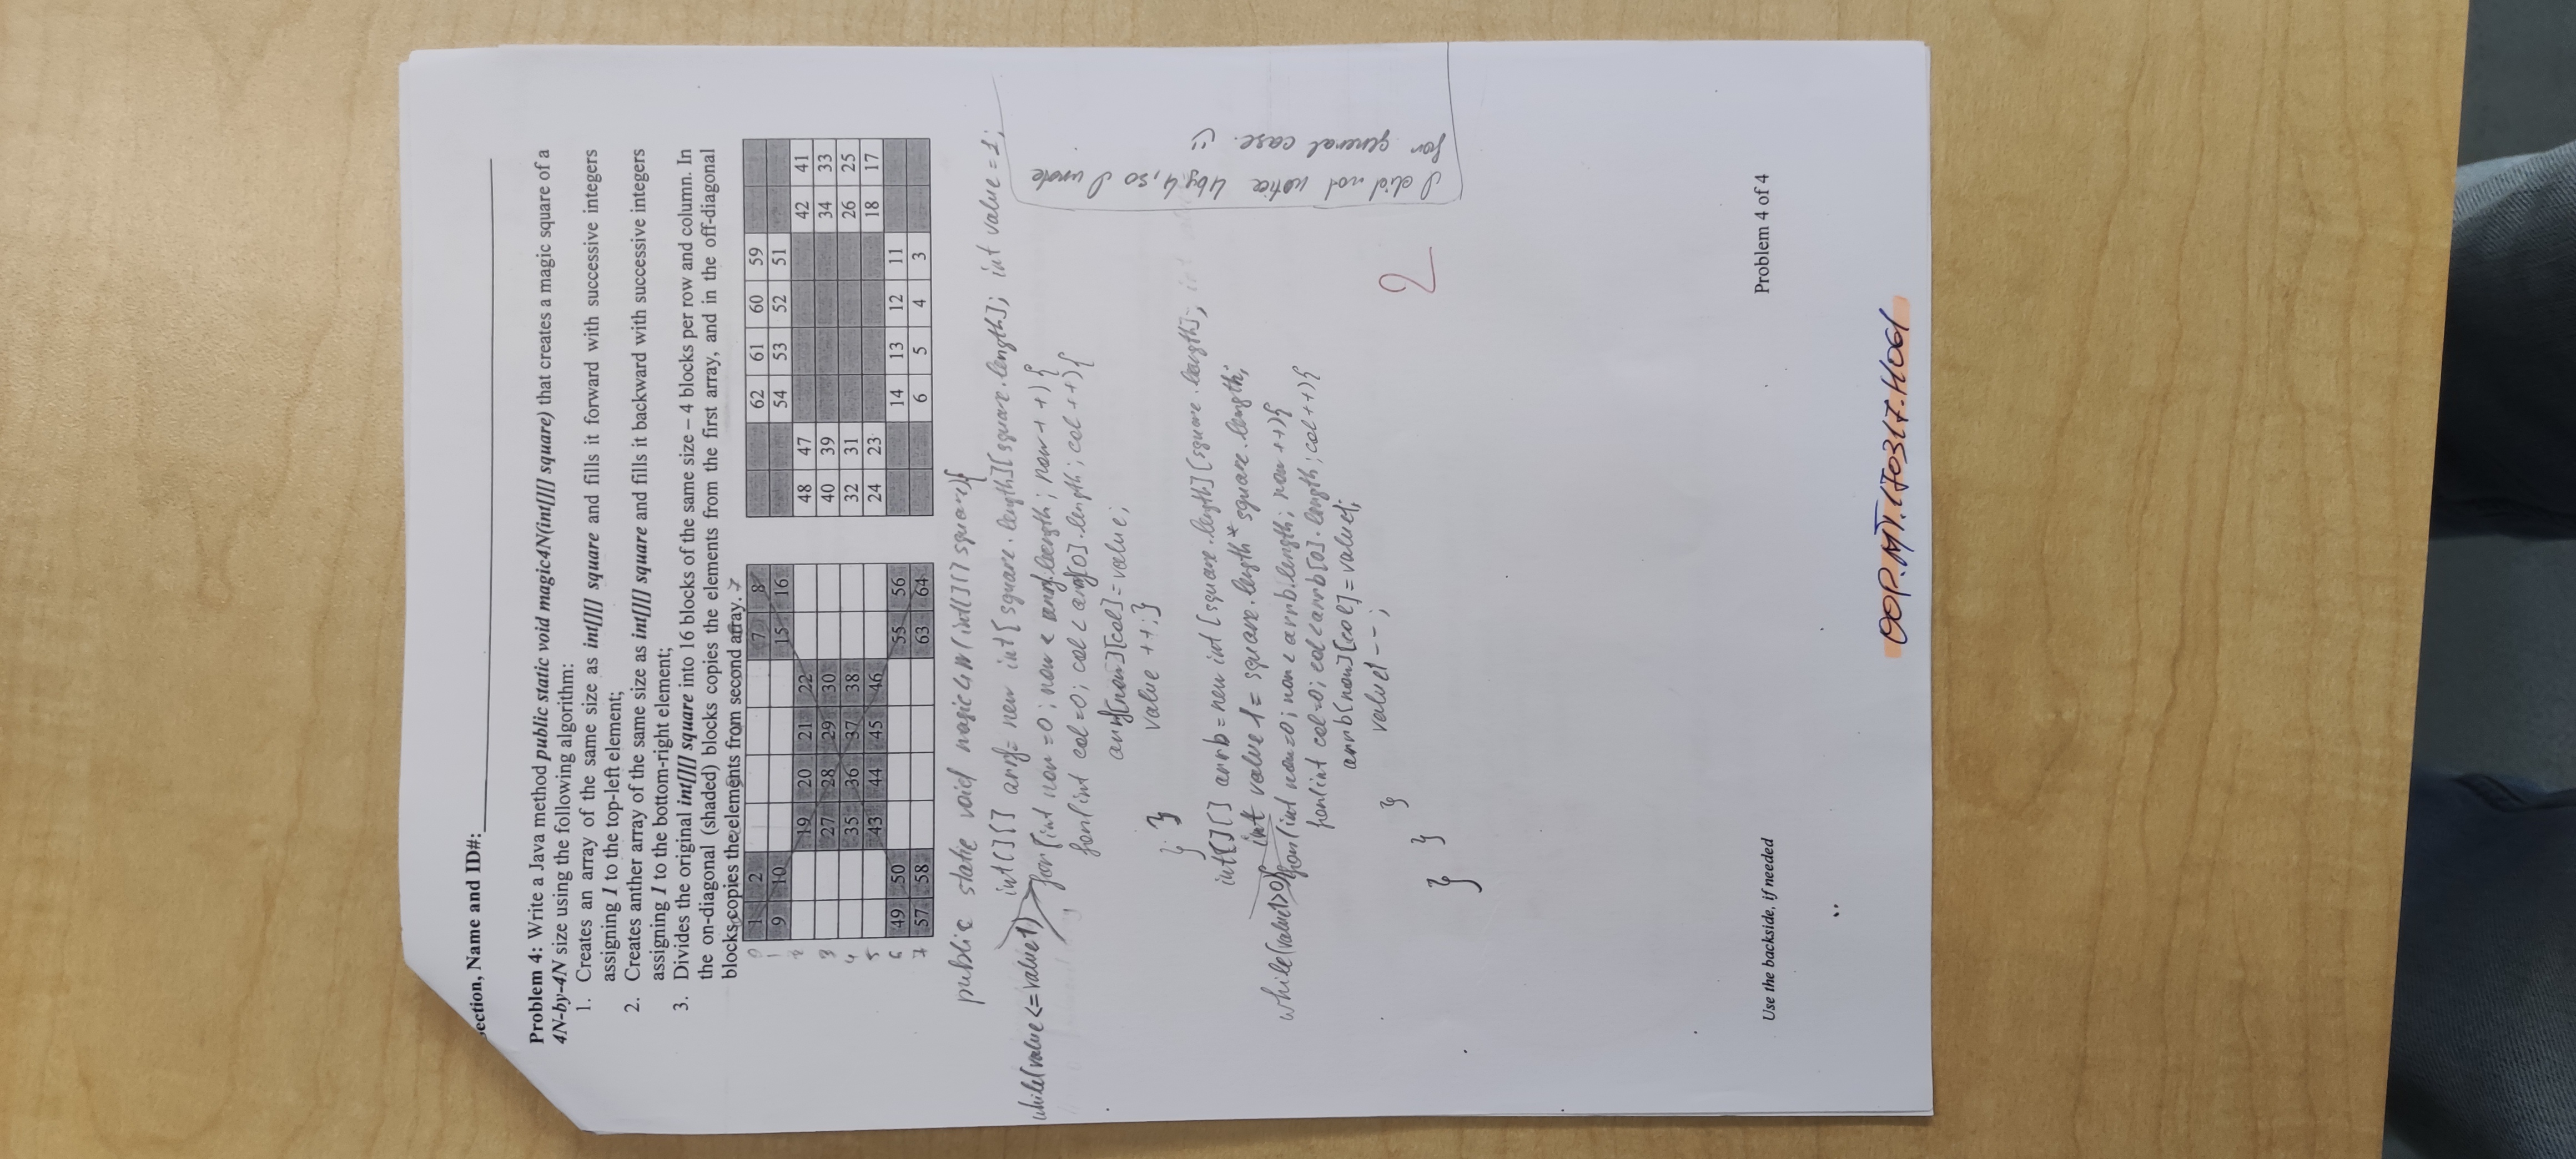 ection, Name and ID#:
Problem 4: Write a Java method public static void magic4N(int[][] square) that creates a magic square of a
4N-by-4N size using the following algorithm:
1. Creates an array of the same size as int[][] square and fills it forward with successive integers
assigning 1 to the top-left element;
2. Creates anther array of the same size as int[][] square and fills it backward with successive integers
assigning 1 to the bottom-right element;
3. Divides the original int[][] square into 16 blocks of the same size – 4 blocks per row and column. In
the on-diagonal (shaded) blocks copies the elements from the first array, and in the off-diagonal
blocks copies the elements from second array. 7
0 1 2 7 8 62 61 60 59
1 9 10 15 16 54 53 52 51
2 19 20 21 22 48 47 42 41
3 27 28 29 30 40 39 34 33
4 35 36 37 38 32 31 26 25
5 43 44 45 46 24 23 18 17
6 49 50 55 56 14 13 12 11
7 57 58 63 64 6 5 4 3
public static void magic4N(int[][] square){
int[][] arrf= new int[square.length][square.length]; int value=1;
while(value<=value1) for(int row=0; row < arrf.length; row++){
for(int col=0; col < arrf[0].length; col++){
arrf[row][col]=value;
value++;}
}
}
int[][] arrb=new int[square.length][square.length];
int value1= square.length*square.length;
while(value1>0){ for(int row=0; row<arrb.length; row++){
for(int col=0; col<arrb[0].length; col++){
arrb[row][col]=value1;
value1--;
}
}
}
I did not notice 4by4, so I wrote
for general case. :)
2
Use the backside, if needed
Problem 4 of 4
OOP.MT.170317.H061